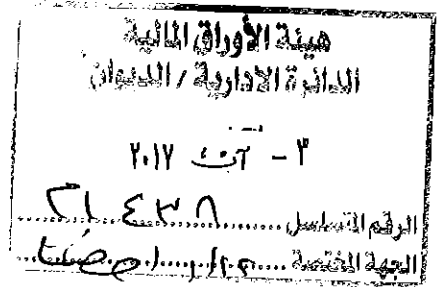 هيئة الأوراق المالية
الدائرة الادارية / الديوان
٣ - آب ٢٠١٧
الرقم المتسلسل
الجهة المختصة